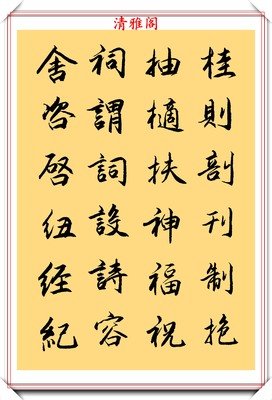 清雅阁
桂則剖刊制抱
抽扶神福祝
祠謂詞設詩容
舍咨啓紐經紀